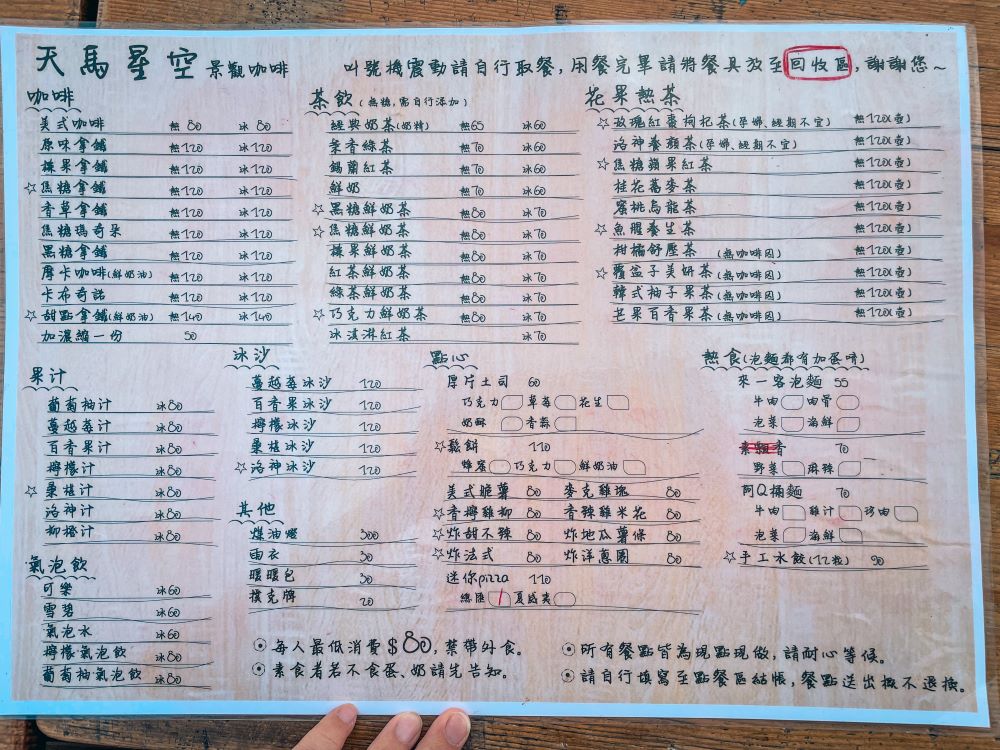 天馬星空 景觀咖啡 叫號機震動請自行取餐,用餐完畢請將餐具放至回收區,謝謝您~
咖啡
美式咖啡 熱80 冰80
原味拿鐵 熱120 冰120
榛果拿鐵 熱120 冰120
☆焦糖拿鐵 熱120 冰120
香草拿鐵 熱120 冰120
焦糖瑪奇朵 熱120 冰120
黑糖拿鐵 熱120 冰120
摩卡咖啡(鮮奶油) 熱120 冰120
卡布奇諾 熱120 冰120
☆甜點拿鐵(鮮奶油) 熱140 冰140
加濃縮一份 50
茶飲(無糖,需自行添加)
經典奶茶(奶精) 熱65 冰60
茉香綠茶 熱70 冰60
錫蘭紅茶 熱70 冰60
鮮奶 熱70 冰60
☆黑糖鮮奶茶 熱80 冰70
☆焦糖鮮奶茶 熱80 冰70
榛果鮮奶茶 熱80 冰70
紅茶鮮奶茶 熱80 冰70
綠茶鮮奶茶 熱80 冰70
☆巧克力鮮奶茶 熱80 冰70
冰淇淋紅茶 冰70
花果熱茶
☆玫瑰紅棗枸杞茶(孕婦、經期不宜) 熱120(壺)
洛神養顏茶(孕婦、經期不宜) 熱120(壺)
☆焦糖蘋果紅茶 熱120(壺)
桂花蕎麥茶 熱120(壺)
蜜桃烏龍茶 熱120(壺)
☆魚腥養生茶 熱120(壺)
柑橘舒壓茶 (無咖啡因) 熱120(壺)
☆覆盆子美妍茶(無咖啡因) 熱120(壺)
韓式柚子果茶(無咖啡因) 熱120(壺)
芒果百香果茶(無咖啡因) 熱120(壺)
果汁
葡萄柚汁 冰80
蔓越莓汁 冰80
百香果汁 冰80
檸檬汁 冰80
☆桑椹汁 冰80
洛神汁 冰80
柳橙汁 冰80
氣泡飲
可樂 冰60
雪碧 冰60
氣泡水 冰60
檸檬氣泡飲 冰80
葡萄柚氣泡飲 冰80
冰沙
蔓越莓冰沙 120
百香果冰沙 120
檸檬冰沙 120
桑椹冰沙 120
☆洛神冰沙 120
其他
煤油燈 300
雨衣 30
暖暖包 30
撲克牌 20
點心
厚片土司 60
巧克力 草莓 花生
奶酥 香蒜
☆鬆餅 110
蜂蜜 巧克力 鮮奶油
美式脆薯 80 麥克雞塊 80
☆香檸雞柳 80 香辣雞米花 80
☆炸甜不辣 80 炸地瓜薯條 80
☆炸法式 80 炸洋蔥圈 80
迷你pizza 110
總匯 夏威夷
熱食(泡麵都有加蛋唷)
來一客泡麵 55
牛肉 肉骨
泡菜 海鮮
素飄香 70
野菜 麻辣
阿Q桶麵 70
牛肉 雞汁 珍肉
泡菜 海鮮
☆手工水餃(12粒) 90
⊙每人最低消費$80,禁帶外食。
⊙素食者若不食蛋、奶請先告知。
⊙所有餐點皆為現點現做,請耐心等候。
⊙請自行填寫至點餐區結帳,餐點送出概不退換。